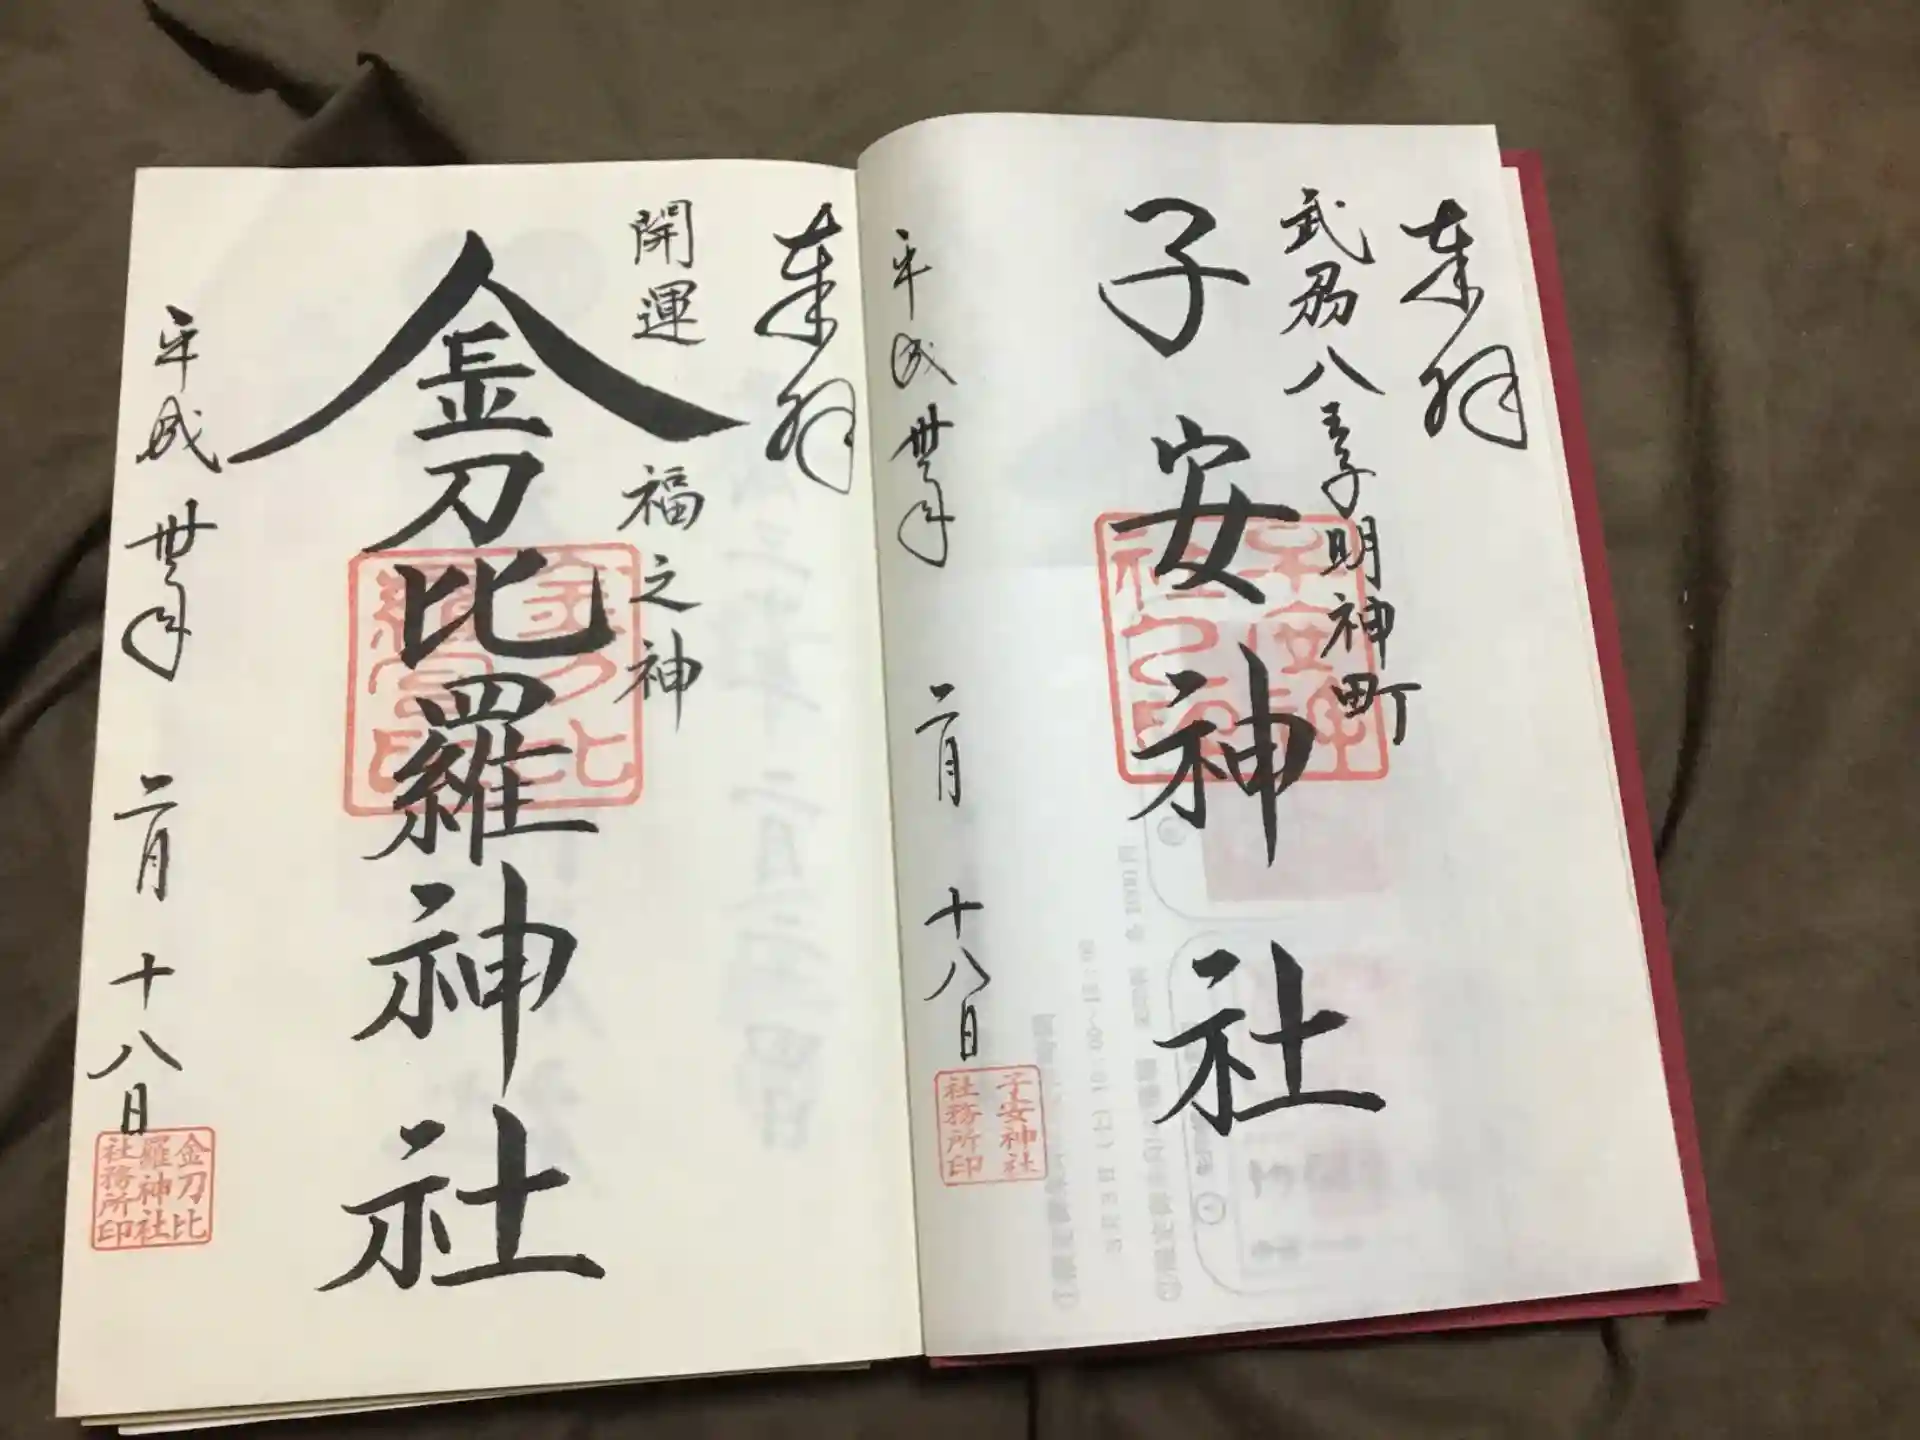 奉拝
武刕八王子明神町
子安神社
平成卅年 二月 十八日
子安神社
社務所印
奉拝
開運 福之神
金刀比羅神社
平成卅年 二月 十八日
金刀比
羅神社
社務所印